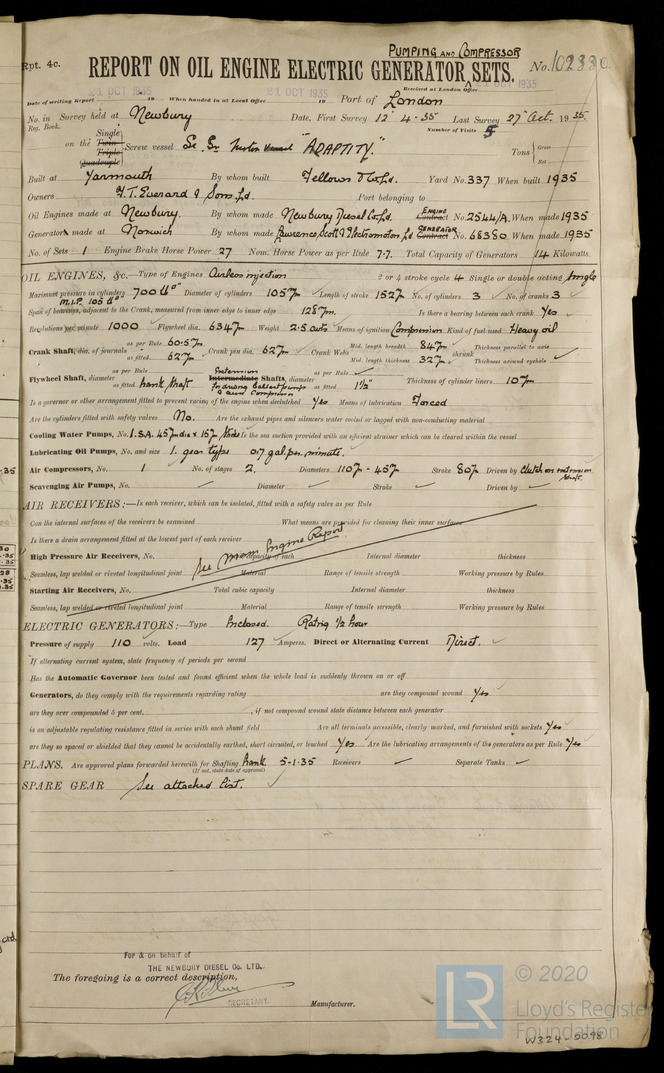 PUMPING AND COMPRESSOR
Rpt. 4c.
REPORT ON OIL ENGINE ELECTRIC GENERATOR SETS.
No. 102330
21 OCT 1935
21 OCT 1935
21 OCT 1935
Received at London Office
Date of writing Report 19 When handed in at Local Office 19 Port of London
No. in Survey held at Newbury Date, First Survey 12 4-35 Last Survey 27 Oct. 1935
Reg. Book. Number of Visits 5
Single
on the Twin Screw vessel "ADAPTITY." Tons Gross
Triple Net
Quadruple
Built at Yarmouth By whom built Fellows & Co Ld. Yard No. 337 When built 1935
Owners F. T. Everard & Sons Ld. Port belonging to
Oil Engines made at Newbury. By whom made Newbury Diesel Co. Ld. ENGINE Contract No. 2544/A. When made 1935
Generators made at Norwich By whom made Lawrence, Scott & Electromotors, Ld GENERATOR Contract No. 68380 When made 1935
No. of Sets 1 Engine Brake Horse Power 27 Nom. Horse Power as per Rule 7.7. Total Capacity of Generators 14 Kilowatts.
OIL ENGINES, &c.—Type of Engines Airless injection 2 or 4 stroke cycle 4 Single or double acting Single
Maximum pressure in cylinders 700 lbs" Diameter of cylinders 105 7m Length of stroke 152 7m No. of cylinders 3 No. of cranks 3
M.I.P. 105 lbs"
Span of bearings, adjacent to the Crank, measured from inner edge to inner edge 128 7m. Is there a bearing between each crank Yes
Revolutions per minute 1000 Flywheel dia. 634 7m Weight 2.5 cwts Means of ignition Compression Kind of fuel used Heavy oil
Crank Shaft, dia. of journals as per Rule 60.5 7m as fitted 62 7m Crank pin dia. 62 7m Crank Webs Mid. length breadth 84 7m Thickness parallel to axis
Mid. length thickness 32 7m shrunk Thickness around eyehole
Flywheel Shaft, diameter as per Rule as fitted Crank Shaft Extension Intermediate Shafts, diameter as per Rule
for driving ballast pump & aux Compressor as fitted 1½" Thickness of cylinder liners 10 7m
Is a governor or other arrangement fitted to prevent racing of the engine when declutched Yes Means of lubrication Forced
Are the cylinders fitted with safety valves No. Are the exhaust pipes and silencers water cooled or lagged with non-conducting material
Cooling Water Pumps, No. 1. S.A. 45 7m dia x 15 7m Stroke Is the sea suction provided with an efficient strainer which can be cleared within the vessel
Lubricating Oil Pumps, No. and size 1. gear type 0.7 gal per minute.
Air Compressors, No. 1 No. of stages 2. Diameters 110 7m - 45 7m Stroke 80 7m Driven by Clutch on extension shaft.
Scavenging Air Pumps, No. Diameter Stroke Driven by
AIR RECEIVERS:—Is each receiver, which can be isolated, fitted with a safety valve as per Rule
Can the internal surfaces of the receivers be examined What means are provided for cleaning their inner surfaces
Is there a drain arrangement fitted at the lowest part of each receiver
See Main Engine Report
High Pressure Air Receivers, No. Capacity of each Internal diameter thickness
Seamless, lap welded or riveted longitudinal joint Material Range of tensile strength Working pressure by Rules
Starting Air Receivers, No. Total cubic capacity Internal diameter thickness
Seamless, lap welded or riveted longitudinal joint Material Range of tensile strength Working pressure by Rules
ELECTRIC GENERATORS:—Type Enclosed. Rating ½ hour
Pressure of supply 110 volts. Load 127 Amperes. Direct or Alternating Current Direct.
If alternating current, state frequency of periods per second
Has the Automatic Governor been tested and found efficient when the whole load is suddenly thrown on or off
Generators, do they comply with the requirements regarding rating are they compound wound Yes
are they over compounded 5 per cent. , if not compound wound state distance between each generator
is an adjustable regulating resistance fitted in series with each shunt field Are all terminals accessible, clearly marked, and furnished with sockets Yes
are they so spaced or shielded that they cannot be accidentally earthed, short circuited, or touched Yes Are the lubricating arrangements of the generators as per Rule Yes
PLANS. Are approved plans forwarded herewith for Shafting Crank 5-1-35 Receivers Separate Tanks
(If not, state date of approval)
SPARE GEAR See attached list.
For & on behalf of
THE NEWBURY DIESEL Co. LTD.
The foregoing is a correct description,
SECRETARY.
Manufacturer.
LR
© 2020
Lloyd's Register
Foundation
W324-0098